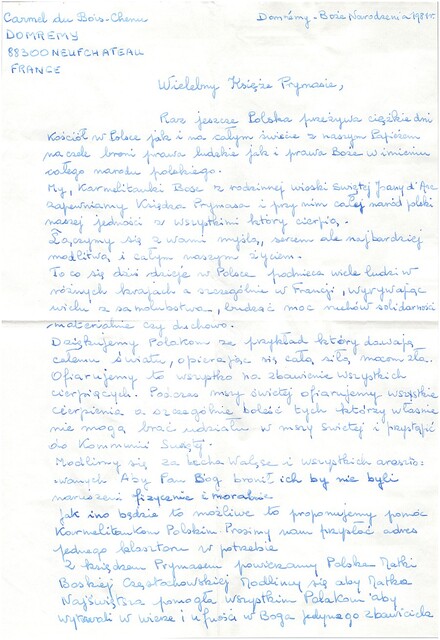 Carmel du Bois-Chenu
Domrémy - Boże Narodzenie 1981r
DOMREMY
88300 NEUFCHATEAU
FRANCE
Wielebny Księże Prymasie,
Raz jeszcze Polska przeżywa ciężkie dni
Kościół w Polsce jak i na całym świecie z naszym Papieżem
na czele broni prawa ludzkie jak i prawa Boże w imieniu
całego narodu polskiego.
My, Karmelitanki Bose z rodzinnej wioski Świętej Joany d'Arc
zapewniamy Księdza Prymasa i przy nim całej naród polski
naszej jedności z wszystkimi który cierpią.
Łączymy się z Wami myślą, sercem ale najbardziej
modlitwą i całym naszym życiem.
To co się dziś dzieje w Polsce podnieca wiele ludzi w
różnych krajach a szczególnie w Francji, wyrywając
wielu z samolubstwa, budząc moc ruchów solidarności
materialnie czy duchowo.
Dziękujemy Polakom za przykład który dawają
całemu światu, opierając się całą siłą mocom zła.
Ofiarujemy to wszystko na zbawienie wszystkich
cierpiących. Podczas mszy świętej ofiarujemy wszystkie
cierpienia a szczególnie boleść tych którzy właśnie
nie mogą brać udziału w mszy świętej i przystąpić
do Kommunii Świętej.
Modlimy się za Lecha Wałęse i wszystkich areszto-
wanych Aby Pan Bóg bronił ich by nie byli
naruszeni fizycznie i moralnie
Jak ino będzie to możliwe to proponujemy pomóc
Karmelitankom Polskim. Prosimy nam przysłać adres
jednego klasztora w potrzebie
Z księdzem Prymasem powierzamy Polskę Matki
Boskiej Częstochowskiej Modlimy się aby Matka
Najświętsza pomogła wszystkim Polakom aby
wytrwali w wierze i ufności w Boga jedynego zbawiciela